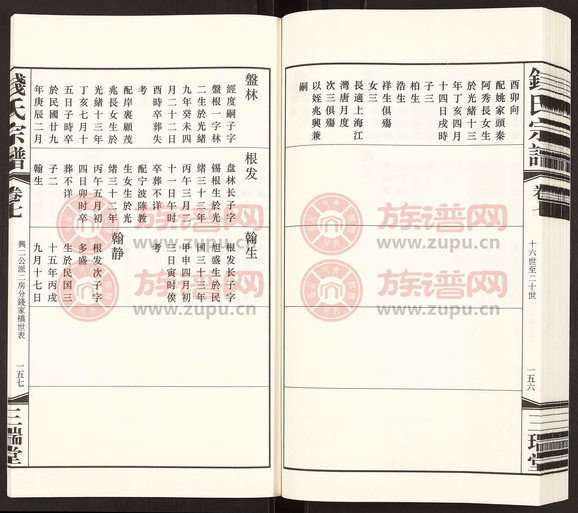 酉卯向
配姚家頭秦
阿秀長女生
於光緒十三
年丁亥四月
十四日戌時
子三
柏生
浩生
祥生俱殤
女三
長適上海江
灣唐月度
次三俱殤
以姪兆興兼
嗣
錢氏宗譜
卷七
十六世至二十世
一五六
三瑞堂
盤林
經度嗣子字
盤根一字林
二生於光緒
九年癸未四
月二十二日
酉時卒葬失
考
配岸裏顧茂
兆長女生於
光緒十三年
丁亥七月十
五日子時卒
於民國廿九
年庚辰二月
根发
盘林长子字
锡根生於光
绪三十三年
丙午三月二
十一日午时
卒葬不详
配宁波陈敦
生女生於光
绪三十二年
丙午五月初
四日卯时卒
葬不详
子二
翰生
翰生
根发长子字
旭盛生於民
国三十三年
甲申四月初
三日寅时俊
考
翰静
根发次子字
多盛
生於民国三
十五年丙戌
九月十七日
錢氏宗譜
卷七
興二公派二房分錢家橋世表
一五七
三瑞堂
族谱网
www.zupu.cn
族谱网
www.zupu.cn
族谱网
www.zupu.cn
族谱网
www.zupu.cn